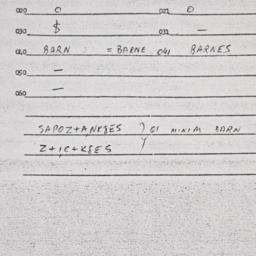 020 0 021 0
030 $ 031 —
040 BARN : = BARNE 041 BARNES
050 —
060 —
SAPOZ+A,NK§ES } 01 MINIM BARN
Z+,C+K§ES